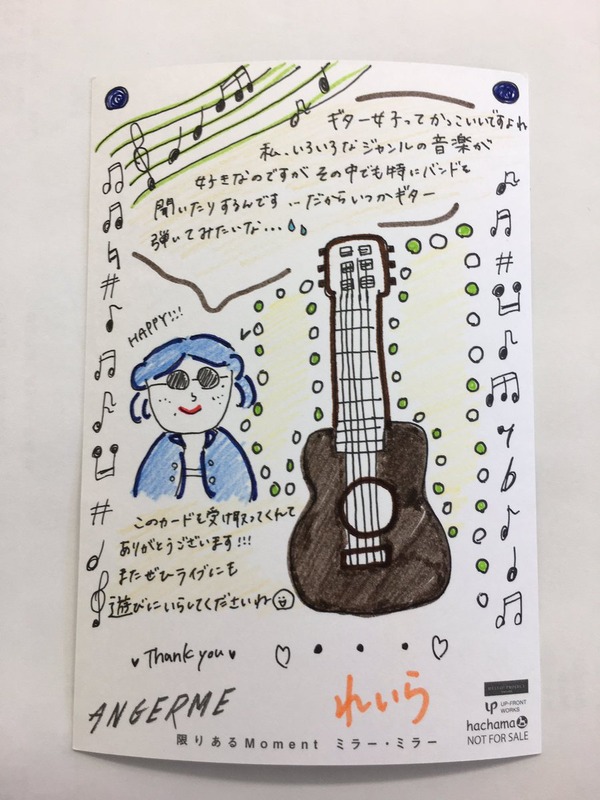 ギター女子ってかっこいいですよね
私、いろいろなジャンルの音楽が
好きなのですが その中でも特にバンドを
聞いたりするんです…だからいつかギター
弾いてみたいな...
HAPPY!!!
このカードを受け取ってくれて
ありがとうございます!!!
またぜひライブにも
遊びにいらしてくださいね
Thank you
ANGERME
れいら
限りあるMoment ミラー・ミラー
UP-FRONT WORKS
hachama
NOT FOR SALE